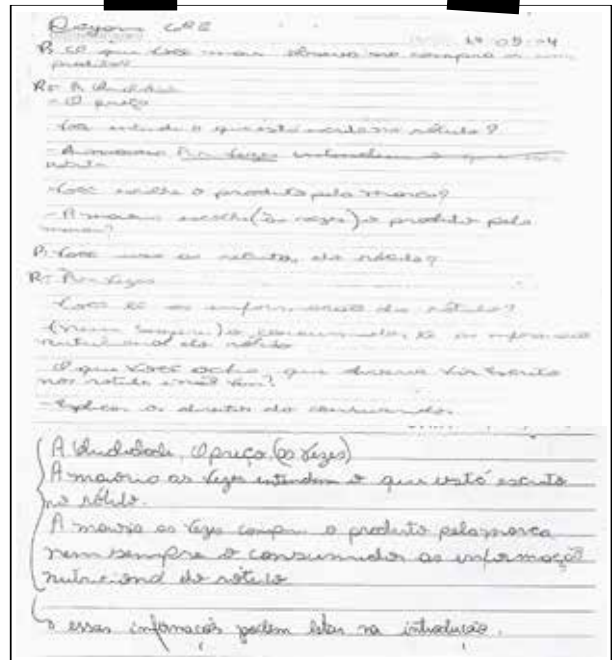 Dayane
P: O que você mais observa ao comprar um
produto?
R: A Qualidade
- O preço
- Você entende o que está escrito no rótulo?
- A maioria Por Vezes entendem o que está
- Você escolhe o produto pela marca?
- A maioria escolhe (às vezes) o produto pela
marca?
P: Você usa as receitas do rótulo?
R: Por Vezes
Você lê as informações do rótulo?
(nem sempre) o consumidor lê as informações
nutricional do rótulo
O que você acha que deveria vir escrito
nos rótulo e não vem?
- Explicar os direitos do consumidor.
A Qualidade, O preço, (as vezes)
A maioria as vezes entendem o que está escrito
no rótulo.
A maioria as vezes compra o produto pela marca
nem sempre o consumidor as informações
nutricional do rótulo
essas informações podem estar na introdução.